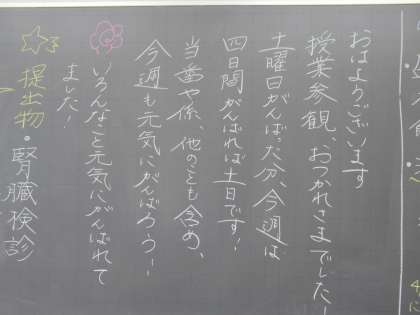 おはようございます
授業参観、おつかれさまでした!
土曜日がんばった分、今週は
四日間がんばれば土日です!
当番や係、他のことも含め、
今週も元気にがんばろう!
いろんなこと元気にがんばれて
ました!
提出物・腎臓検診